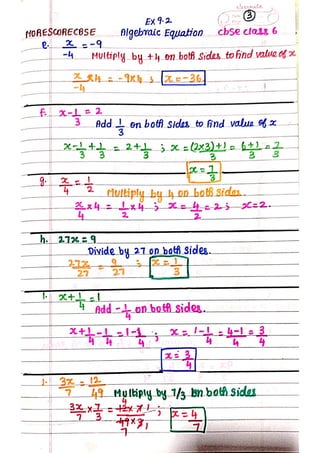 Ex 9.2
③
MORESCORECBSE Algebraic Equation cbse class 6
e. x/-4 = -9
Multiply by +4 on both sides to find value of x
x/-4 × 4 = -9×4 ; x = -36
f. x - 1/3 = 2
Add 1/3 on both sides to find value of x
x - 1/3 + 1/3 = 2 + 1/3 ; x = (2×3)+1/3 = 6+1/3 = 7/3
x = 7/3
g. x/4 = 1/2
Multiply by 4 on both sides.
x/4 × 4 = 1/2 × 4 ; x = 4/2 = 2 ; x = 2.
h. 27x = 9
Divide by 27 on both sides.
27x/27 = 9/27 ; x = 1/3
i. x + 1/4 = 1
Add -1/4 on both sides.
x + 1/4 - 1/4 = 1 - 1/4 ; x = 1 - 1/4 = 4-1/4 = 3/4
x = 3/4
j. 3x/7 = 12/49 Multiply by 7/3 on both sides
3x/7 × 7/3 = 12×7/49×3 ; x = 4/7